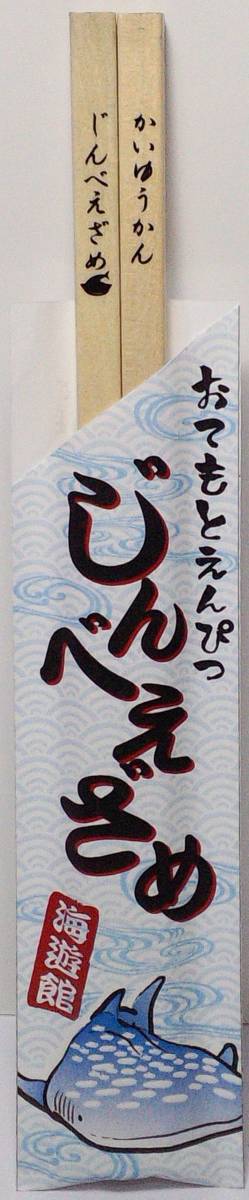 かいゆうかん
じんべえざめ
おてもとえんぴつ
じんべえざめ
海遊館